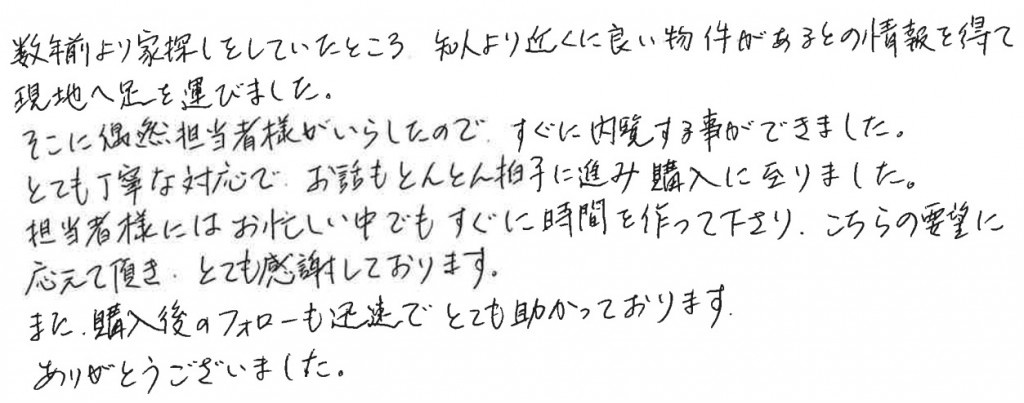 数年前より家探しをしていたところ、知人より近くに良い物件があるとの情報を得て
現地へ足を運びました。
そこに偶然担当者様がいらしたので、すぐに内覧する事ができました。
とても丁寧な対応で、お話もとんとん拍子に進み購入に至りました。
担当者様にはお忙しい中でもすぐに時間を作って下さり、こちらの要望に
応えて頂き、とても感謝しております。
また、購入後のフォローも迅速でとても助かっております。
ありがとうございました。